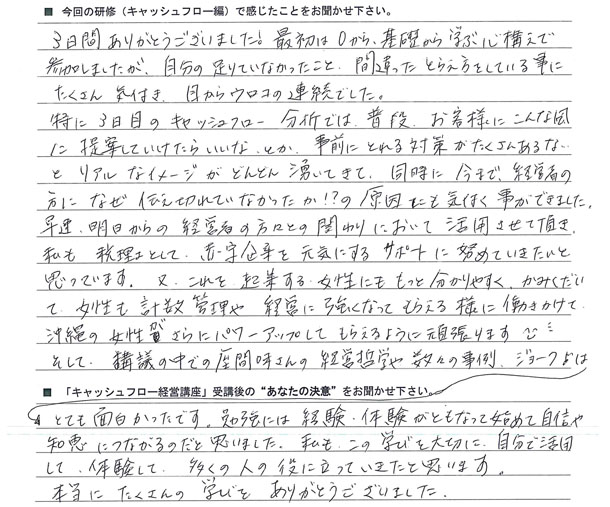 ■ 今回の研修（キャッシュフロー編）で感じたことをお聞かせ下さい。
3日間ありがとうございました！最初は0から、基礎から学ぶ心構えで
参加しましたが、自分の足りていなかったこと、間違ったとらえ方をしている事に
たくさん気付き、目からウロコの連続でした。
特に3日目のキャッシュフロー分析では、普段、お客様にこんな風
に提案していけたらいいな、とか、事前にとれる対策がたくさんあるな
とリアルなイメージがどんどん湧いてきて、同時に今まで、経営者の
方になぜ伝え切れていなかったか！？の原因にも気付く事ができました。
早速、明日からの経営者の方々との関わりにおいて活用させて頂き、
私も税理士として、赤字企業を元気にするサポートに努めていきたいと
思っています。又、これを起業する女性にももっと分かりやすく、かみくだい
て、女性も計数管理や経営に強くなってもらえる様に働きかけて、
沖縄の女性がさらにパワーアップしてもらえるように頑張ります
そして、講議の中での座間味さんの経営哲学や数々の事例、ジョークよは
■ 「キャッシュフロー経営講座」受講後の“あなたの決意”をお聞かせ下さい。
とても面白かったです。勉強には経験・体験がともなって始めて自信や
知恵につながるのだと思いました。私も、この学びを大切に、自分で活用
して、体験して、多くの人の役に立っていきたと思います。
本当にたくさんの学びを ありがとうございました。